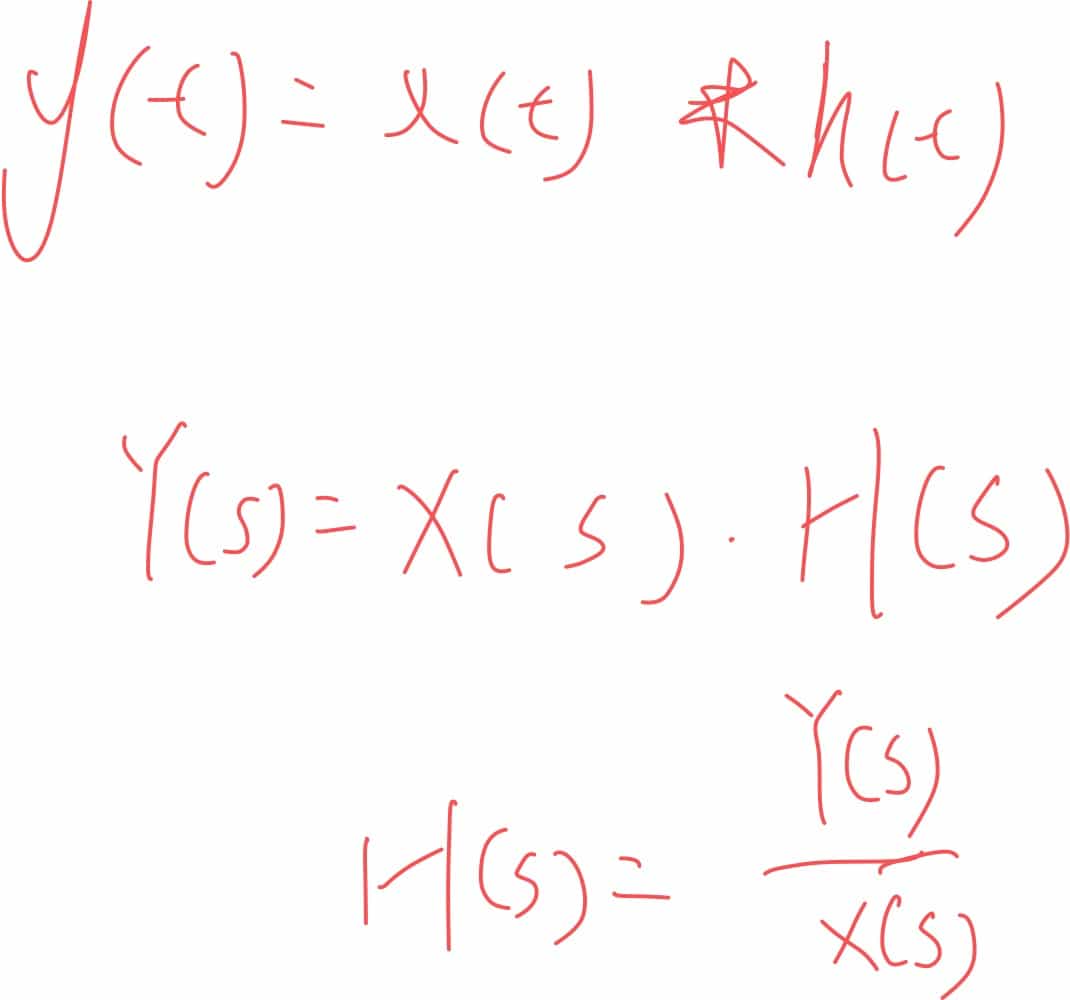 y(t) = x(t) * h(t)
Y(s) = X(s) · H(s)
H(s) = Y(s) / X(s)